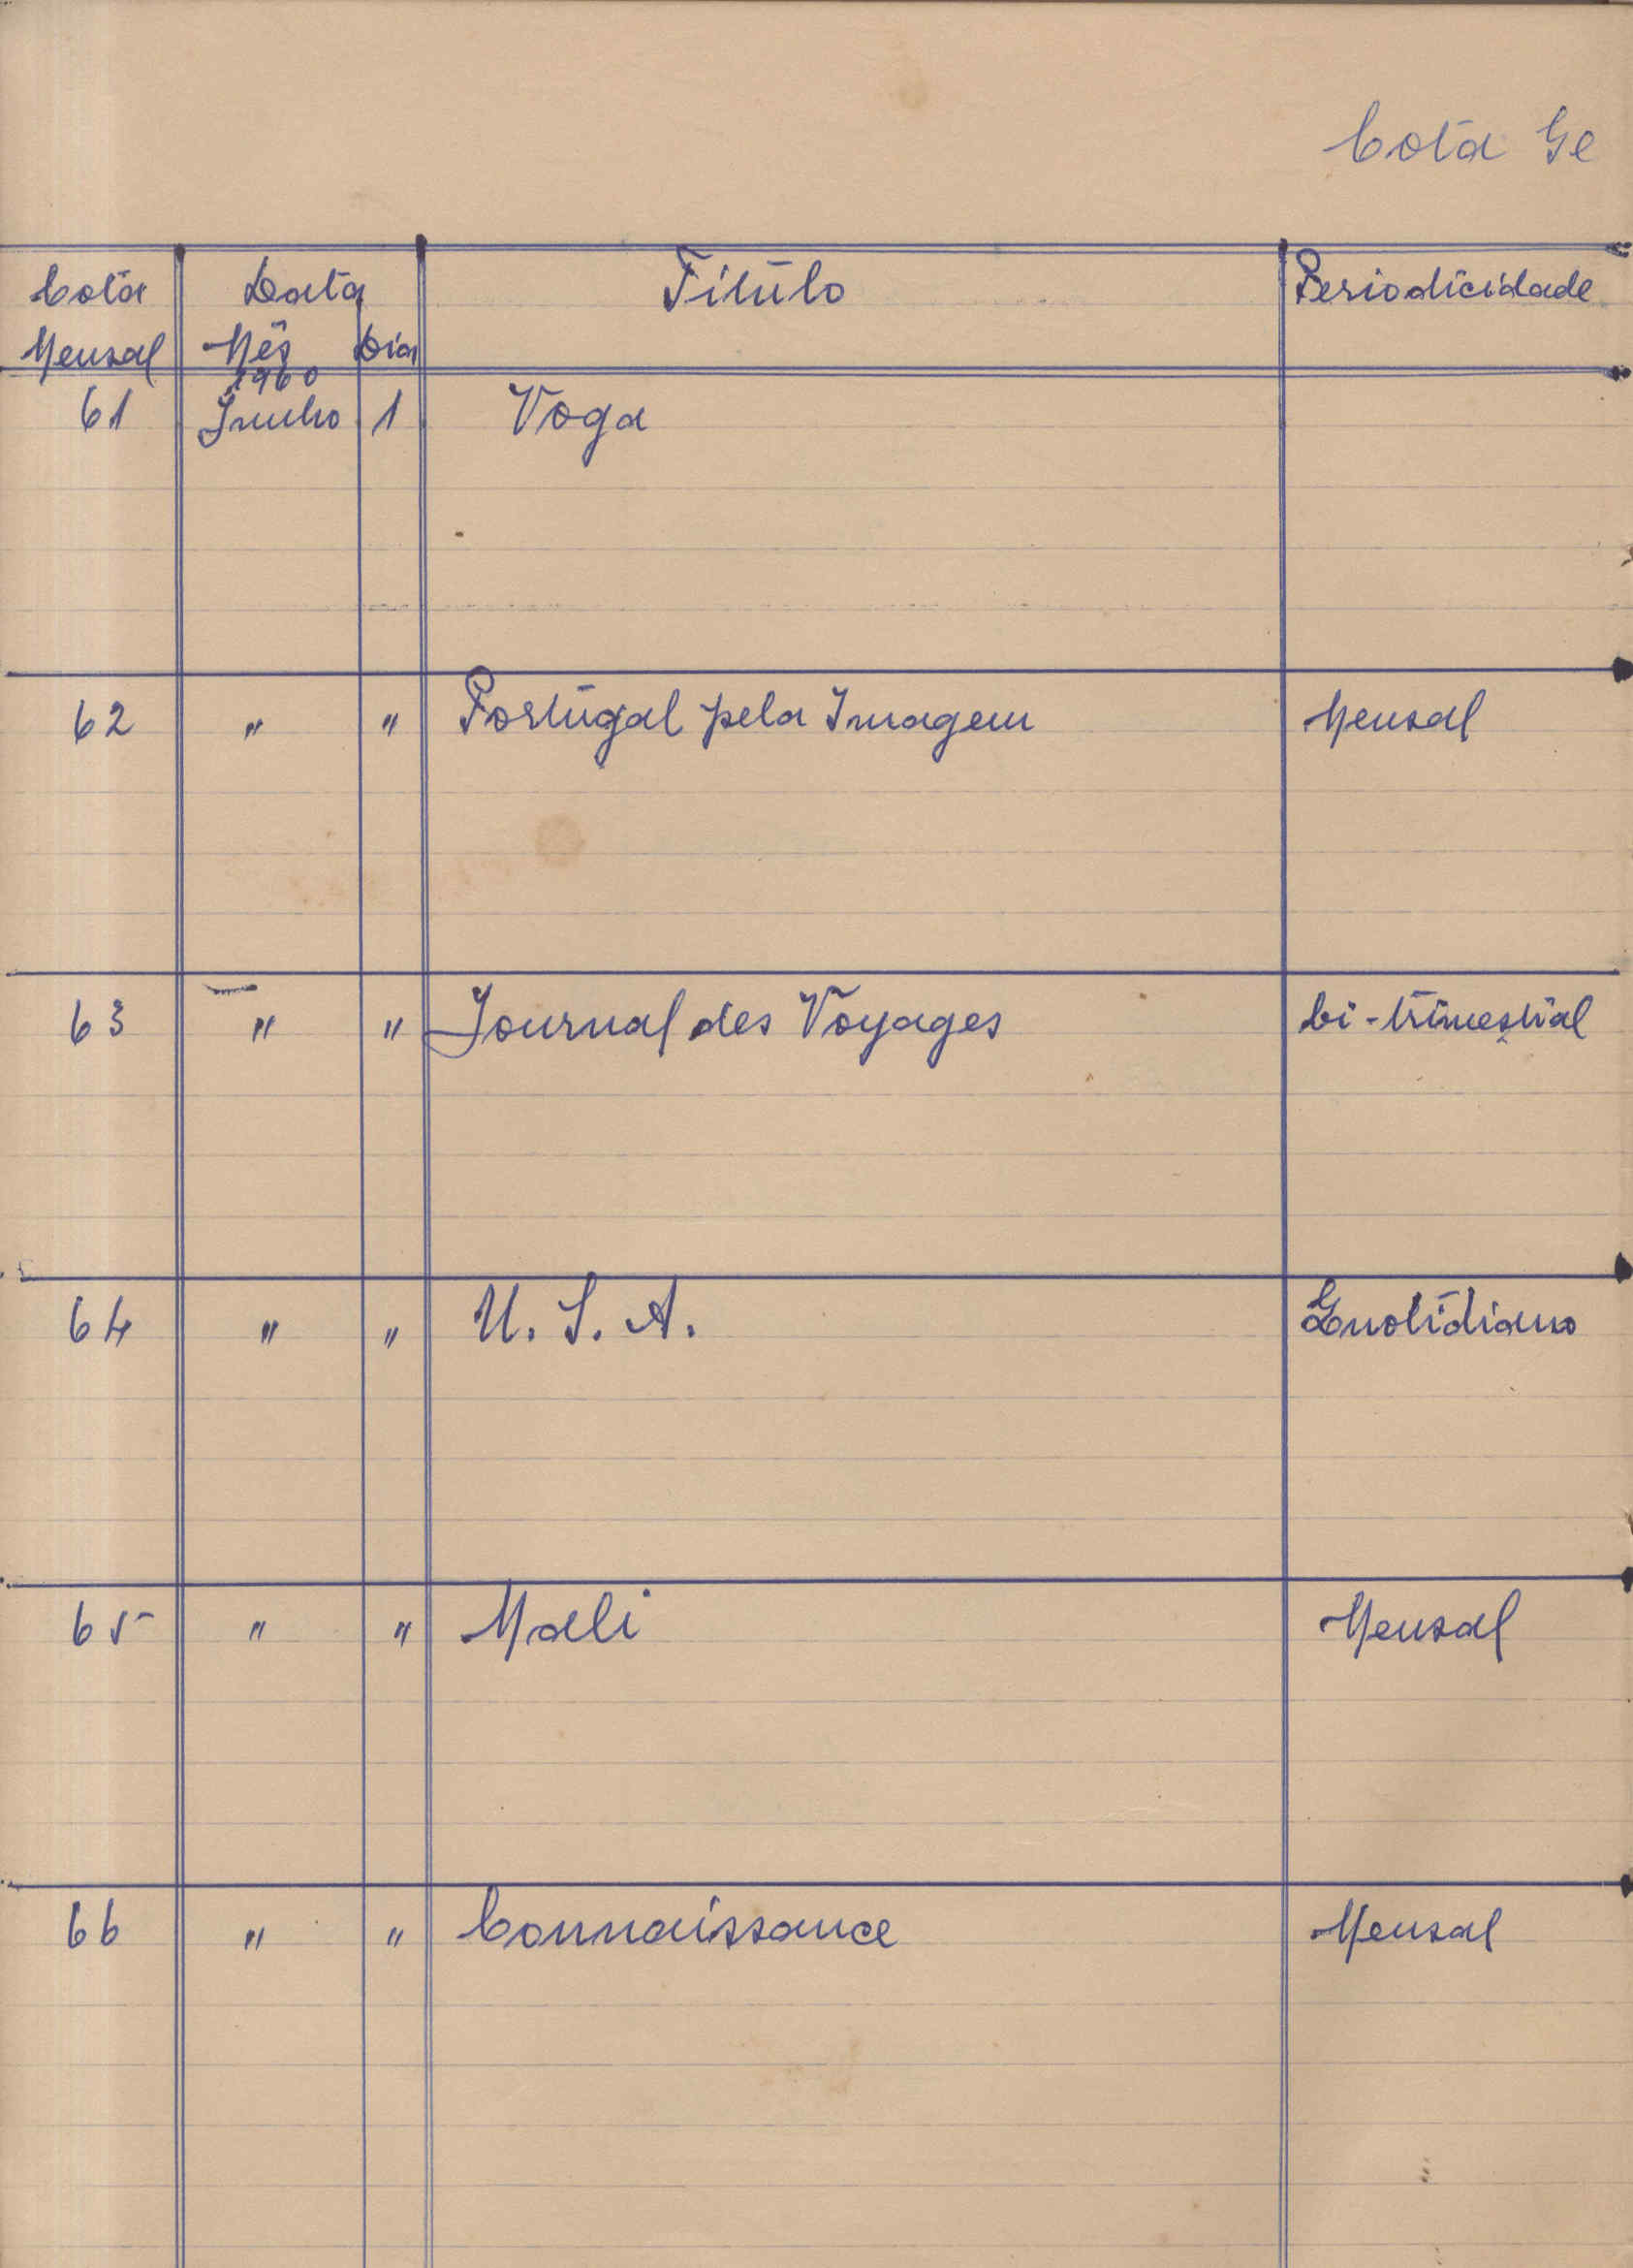 Cota Ge
Cota Data Título Periodicidade
Mensal Mês Dia
1960
61 Junho 1 Voga
62 " " Portugal pela Imagem Mensal
63 " " Journal des Voyages bi-trimestral
64 " " U. S. A. Quotidiano
65 " " Mali Mensal
66 " " Connaissance Mensal